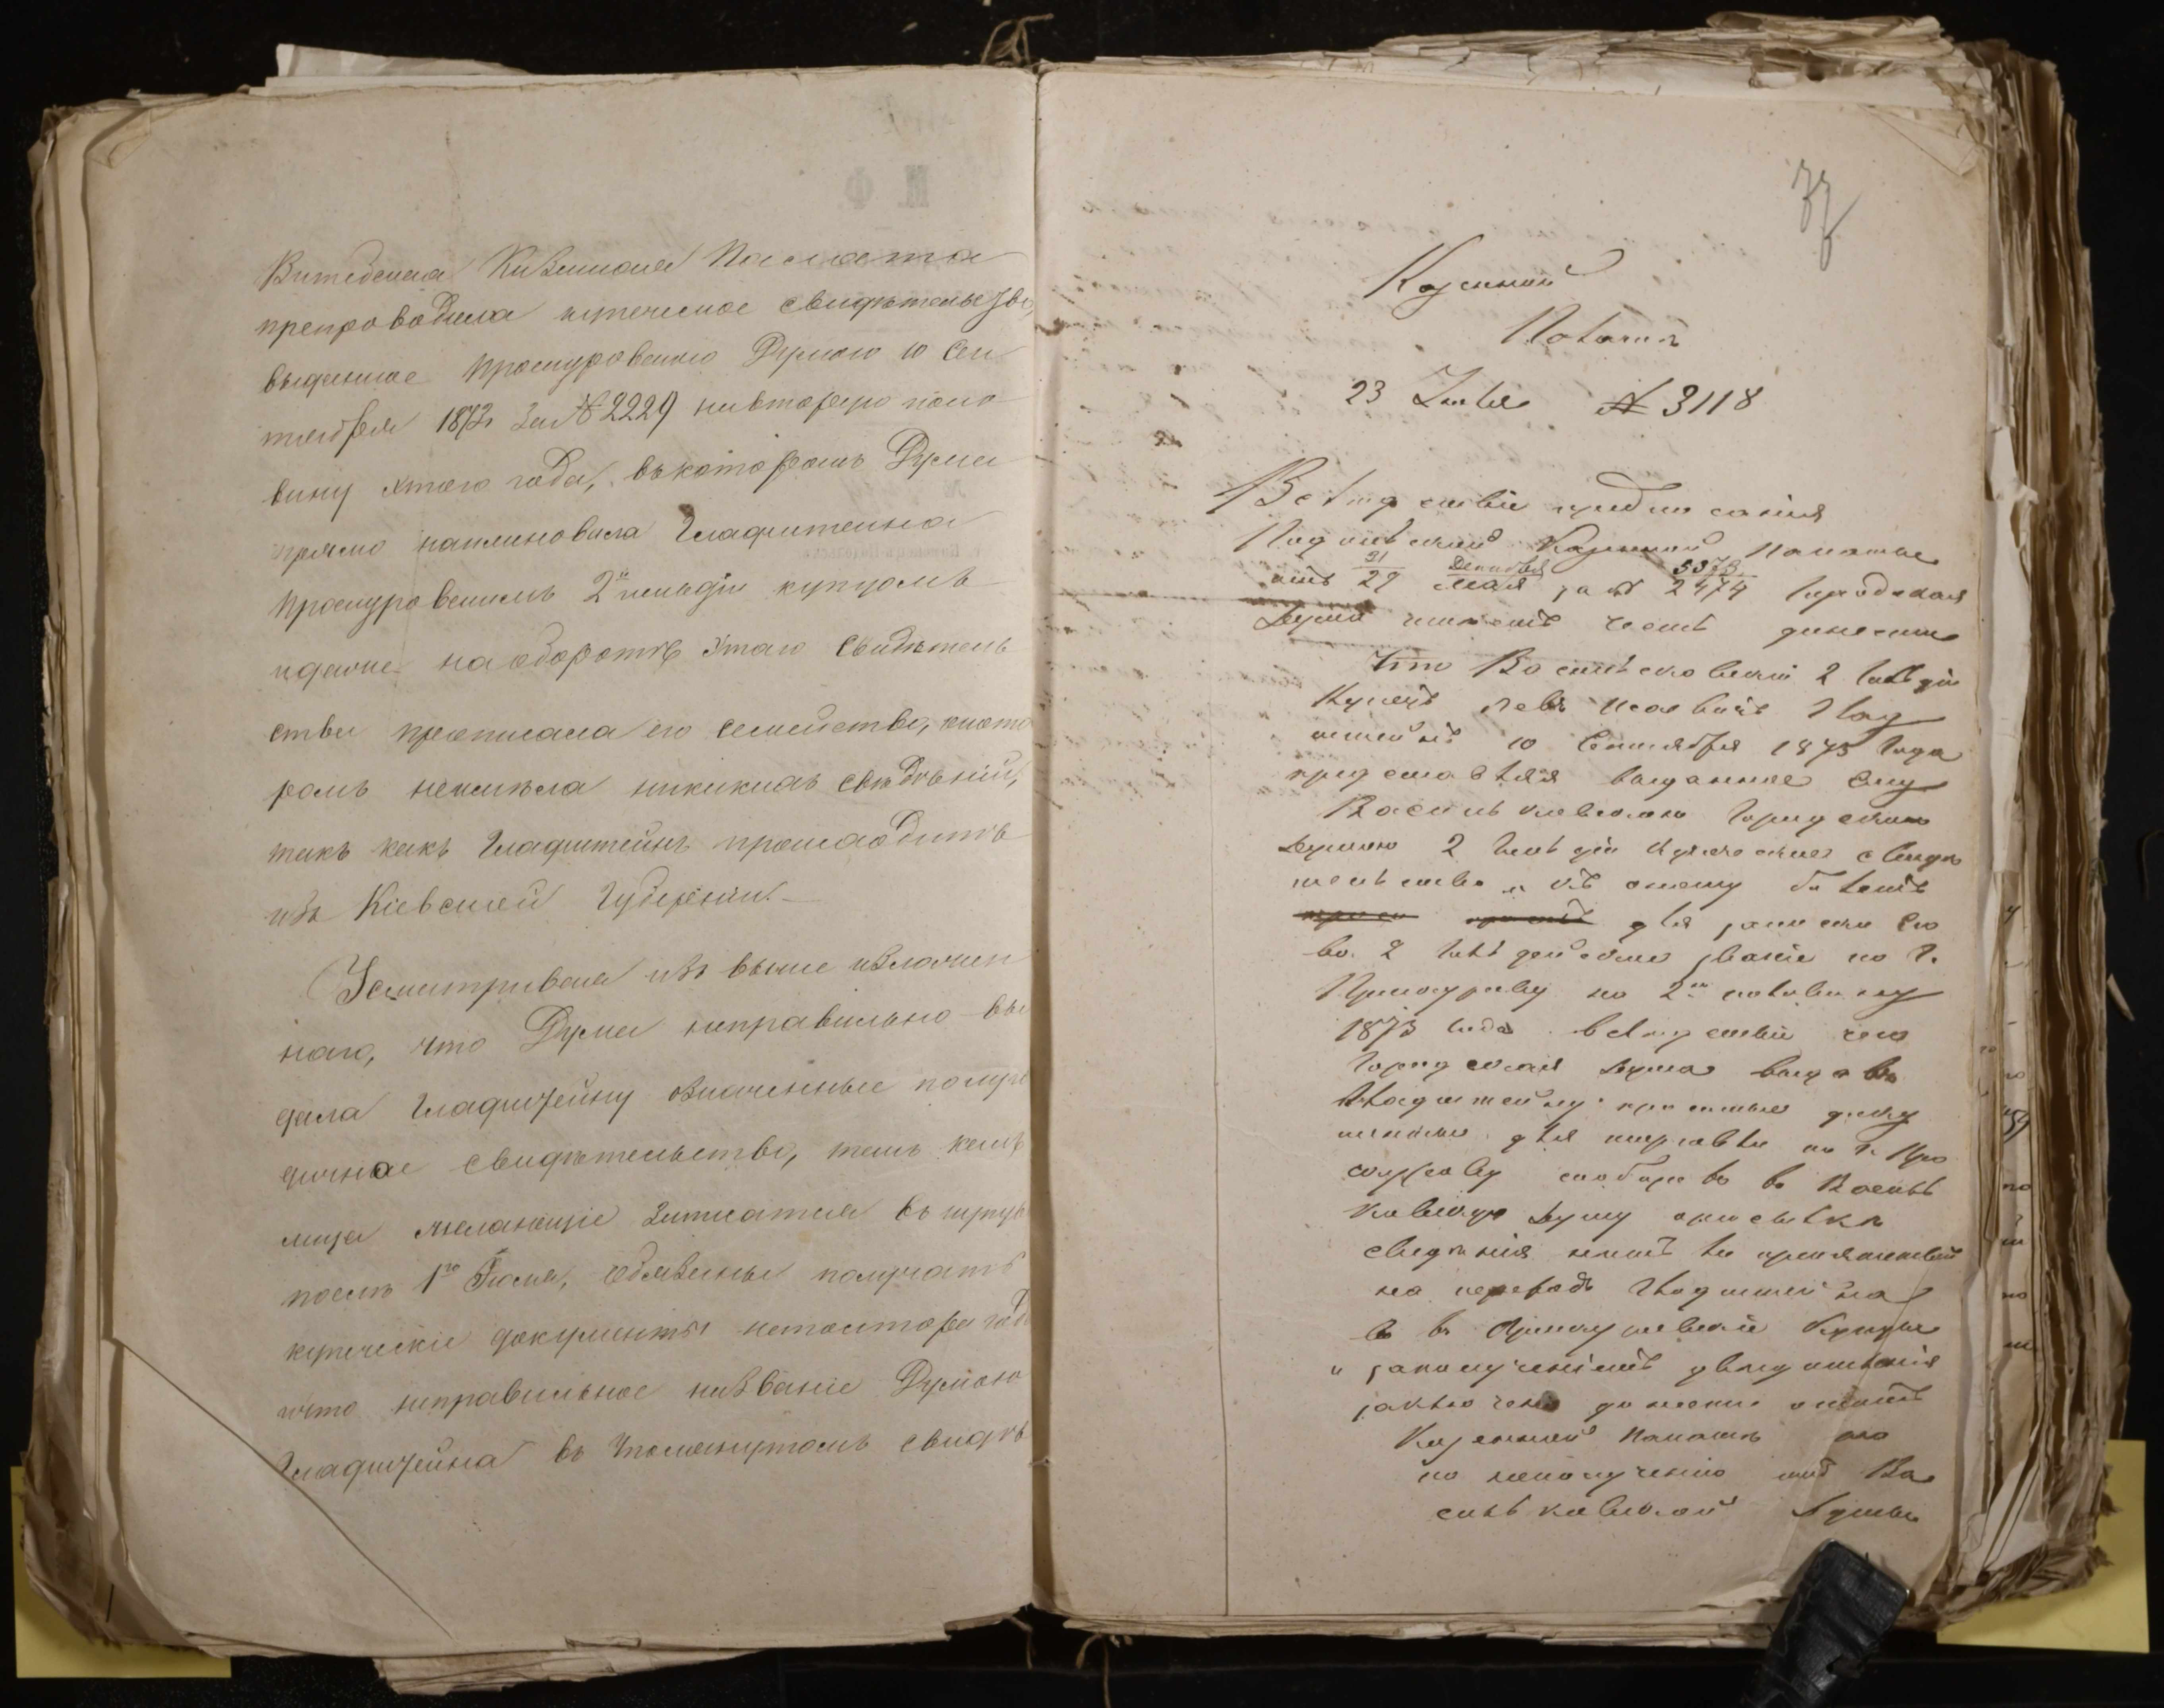 Витебская Казенная Палата
препроводила купеческое свидѣтельство,
выданное Проскуровскою Думою 10 Сен
тября 1873 за № 2229 на вторую поло
вину этого года, въ которомъ Дума
прямо наименовала Гладштейна
Проскуровскимъ 2й гильдіи купцомъ
и далее на оборотѣ этого свидѣтель
ства прописала его семейство, о кото
ромъ неимѣла никакихъ свѣдѣній,
такъ какъ Гладштейнъ происходитъ
изъ Кіевской Губерніи. —
Усматривая изъ выше изложен
наго, что Дума неправильно вы
дала Гладштейну означенные полуго
дичное свидѣтельство, темъ какъ
лица желающіе записатся въ купцы
послѣ 1го Іюля, обязаны получать
купеческіе документы на полтора года
что неправильное названіе Думою
Гладштейна въ упомянутомъ свидѣ
77
Казенной
Палатѣ
23 Іюля № 3118
Вслѣдствіе предписанія
Подольской Казенной Палаты
отъ 31/29 Декабря/Мая за № 5373/2474 Городская
Дума имѣетъ честь донести
что Васильковскій 2 гильдіи
Купецъ Левъ Исаевичъ Глад
штейнъ 10 Сентября 1873 года
представляя выданное ему
Васильковскою Городскою
Думою 2 гильдіи Купеческое свидѣ
тельство и къ оному билетъ
для записки его
во 2 гильдейское званіе по г.
Проскурову на 2ю половину
1873 года вслѣдствіе чего
Городская Дума выдавъ
Гладштейну просимые доку
менты для торговли по г. Про
скурову сообщивъ въ Василь
ковскую Думу о присылкѣ
свидѣнія нѣтъ ли препятствій
на переводъ Гладштейна
въ Проскуровскіе Купцы
и за полученіемъ увѣдомленія
заключено донести о томъ
Казенной Палатѣ но
по неполученію отъ Ва
сильковской Думы